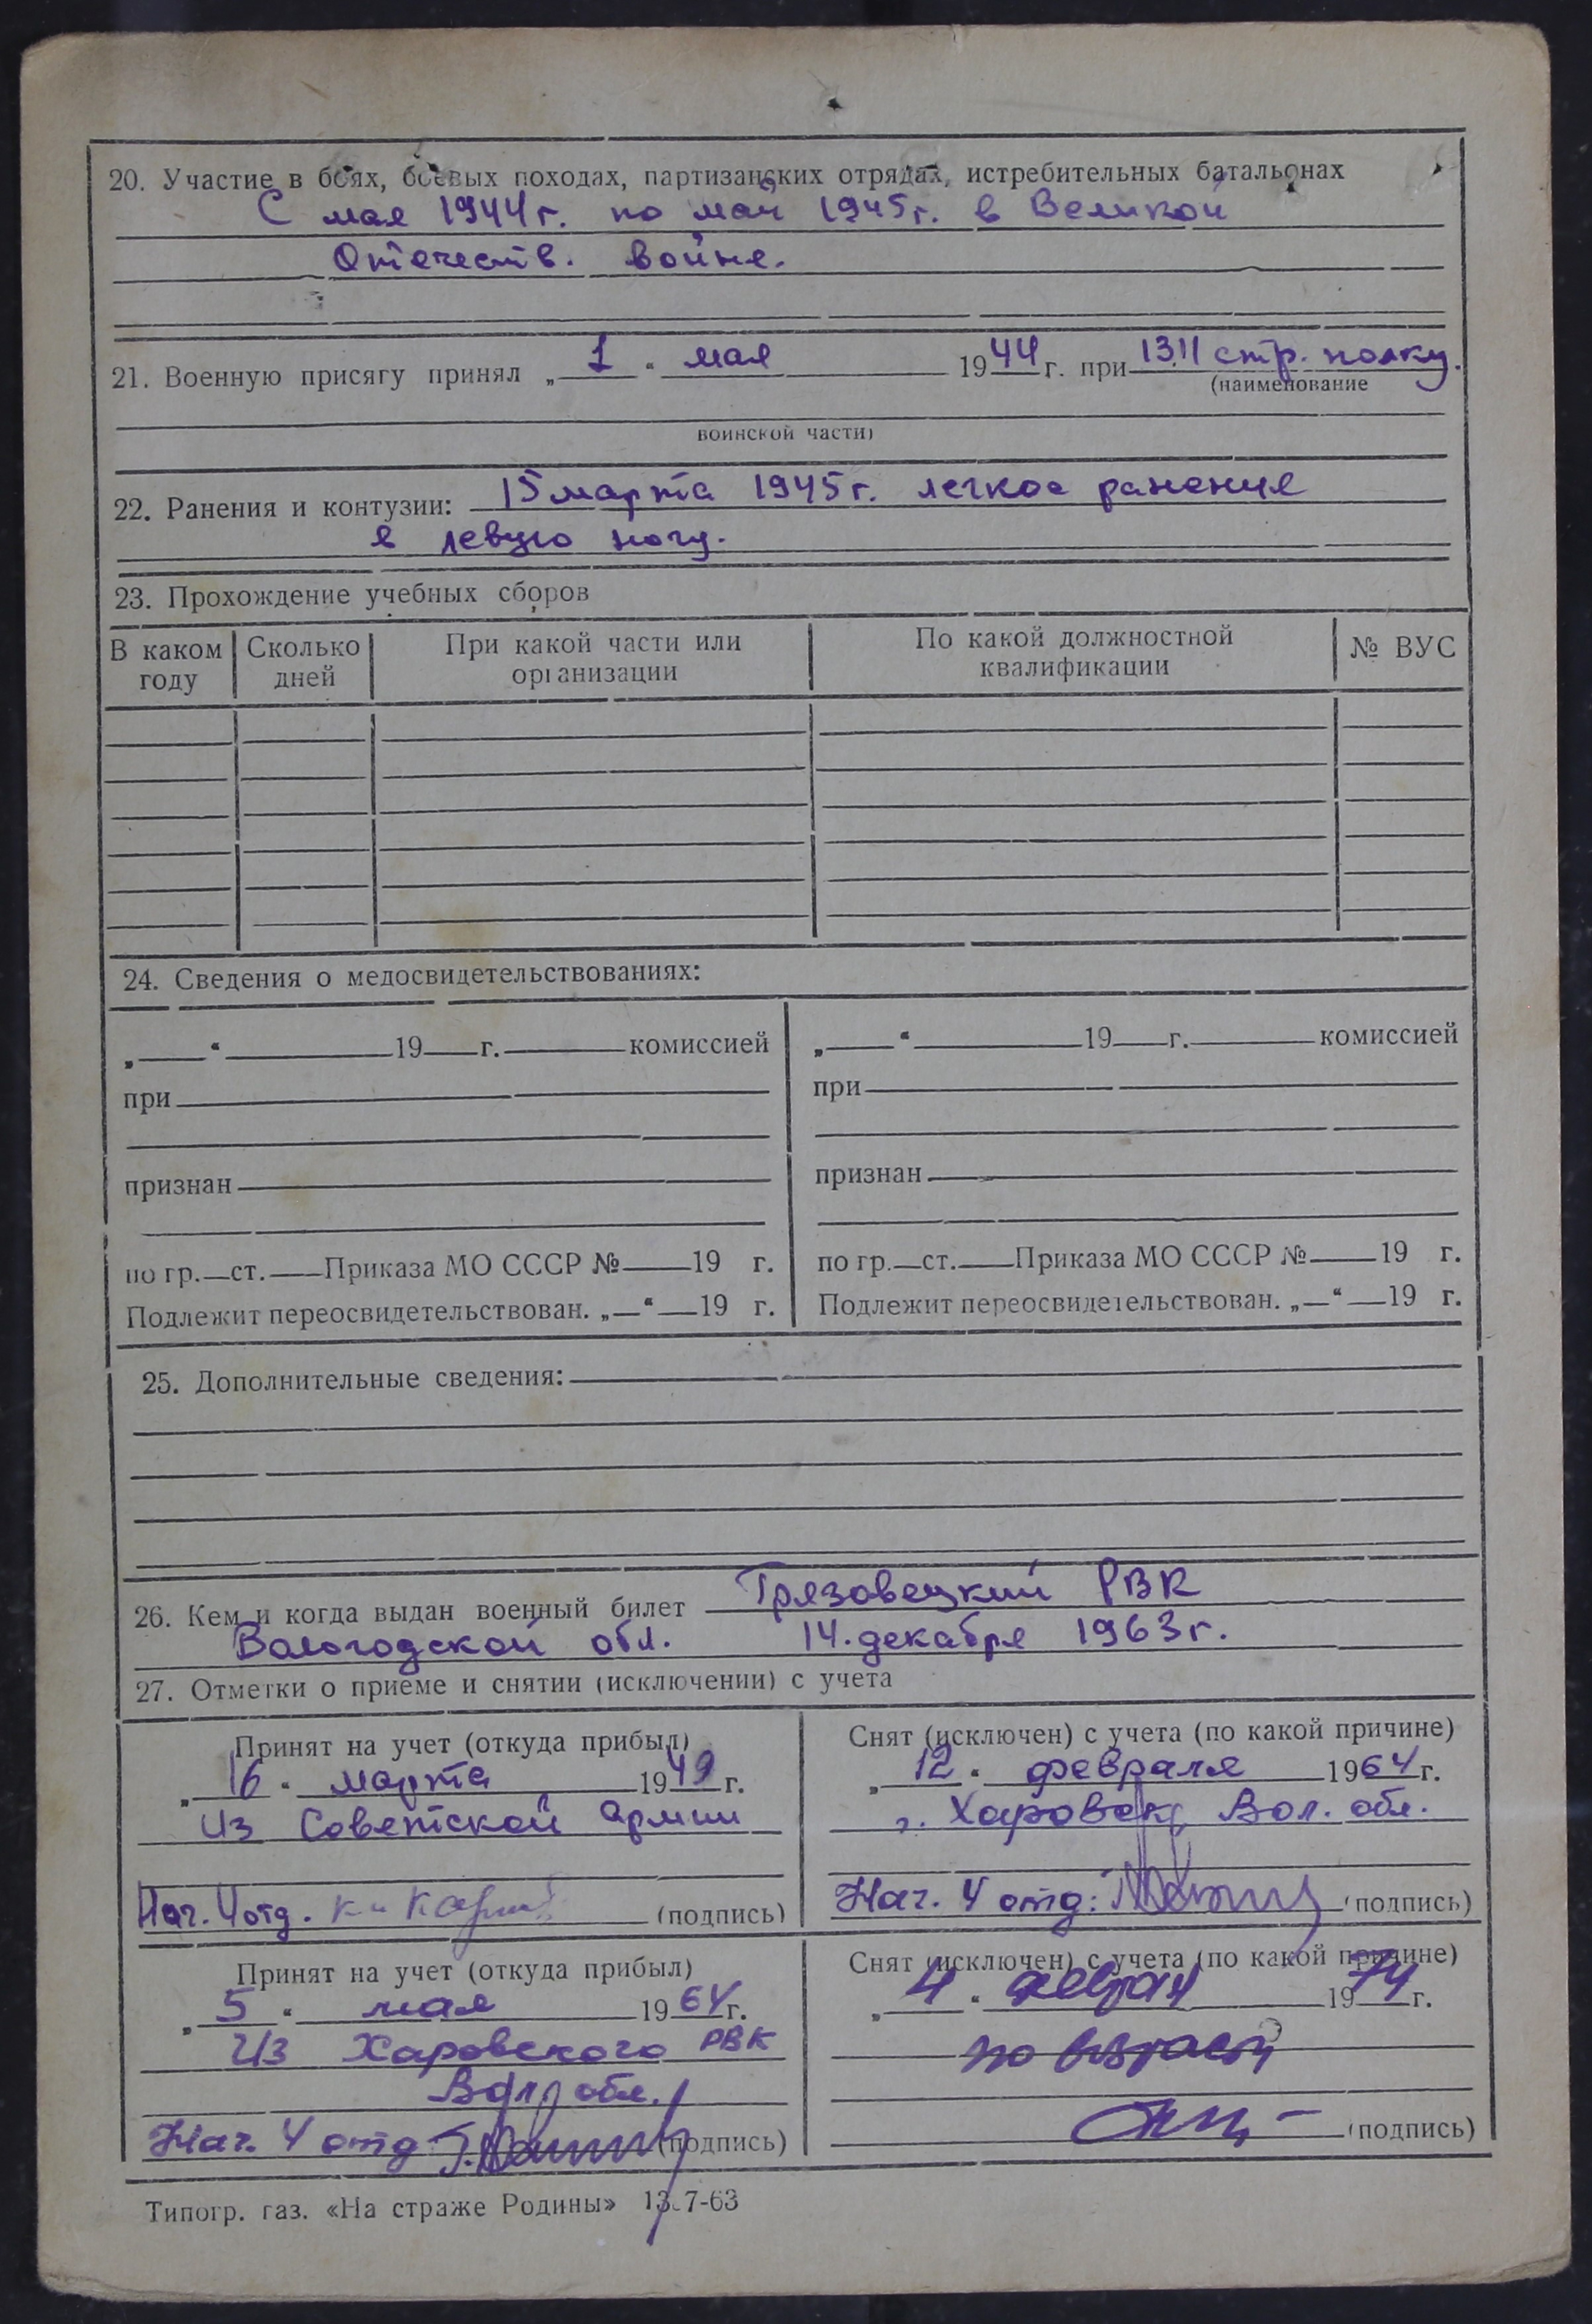 20. Участие в боях, боевых походах, партизанских отрядах, истребительных батальонах
С мая 1944 г. по май 1945 г. в Великой
Отечеств. войне.
21. Военную присягу принял „ 1 “ мая 1944 г. при 1311 стр. полку.
(наименование
воинской части)
22. Ранения и контузии: 15 марта 1945 г. легкое ранение
в левую ногу.
23. Прохождение учебных сборов
В каком году Сколько дней При какой части или организации По какой должностной квалификации № ВУС
24. Сведения о медосвидетельствованиях:
„ “ 19 г. комиссией
при
признан
по гр. ст. Приказа МО СССР № 19 г.
Подлежит переосвидетельствован. „ “ 19 г.
„ “ 19 г. комиссией
при
признан
по гр. ст. Приказа МО СССР № 19 г.
Подлежит переосвидетельствован. „ “ 19 г.
25. Дополнительные сведения:
26. Кем и когда выдан военный билет Грязовецкий РВК
Вологодской обл. 14 декабря 1963 г.
27. Отметки о приеме и снятии (исключении) с учета
Принят на учет (откуда прибыл)
„ 16 “ марта 1949 г.
Из Советской армии
Нач. 4 отд. (подпись)
Снят (исключен) с учета (по какой причине)
„ 12 “ февраля 1964 г.
г. Харовск Вол. обл.
Нач. 4 отд: (подпись)
Принят на учет (откуда прибыл)
„ 5 “ мая 1964 г.
Из Харовского РВК
Вол. обл.
Нач. 4 отд (подпись)
Снят (исключен) с учета (по какой причине)
„ 4 “ 1974 г.
по возрасту
(подпись)
Типогр. газ. «На страже Родины» 13.7-63